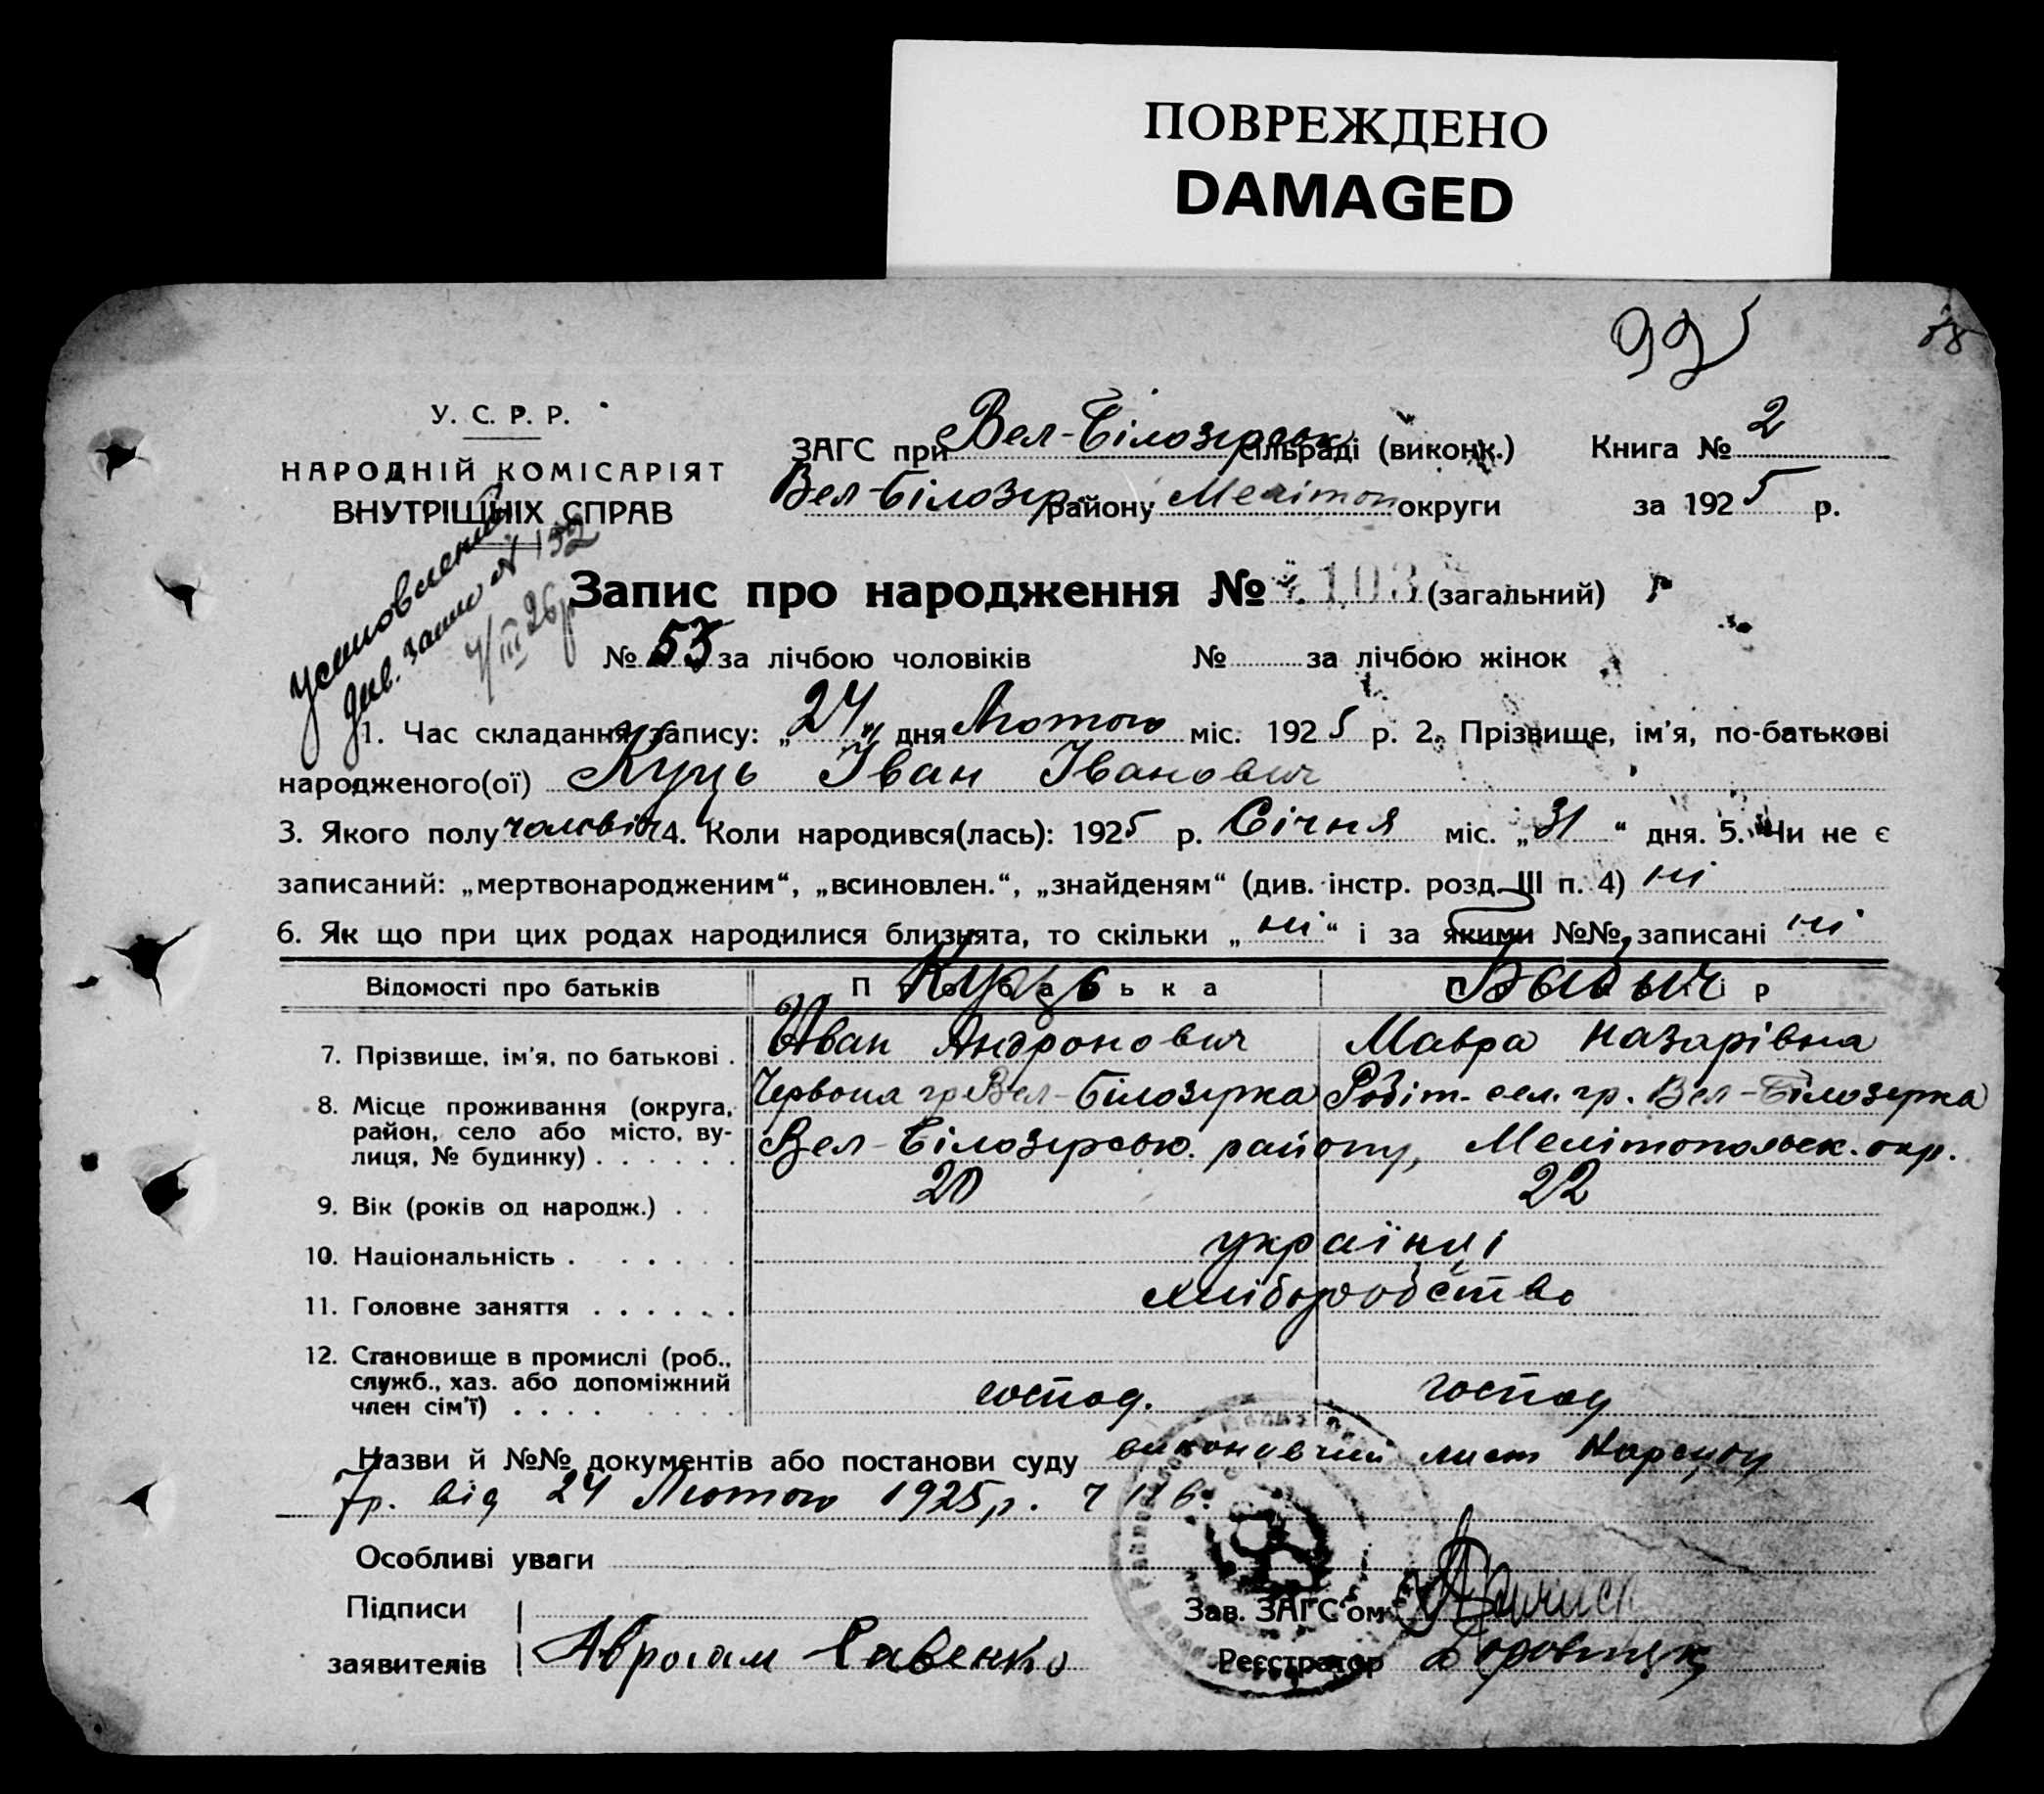 ПОВРЕЖДЕНО
DAMAGED
925
У. С. Р. Р.
НАРОДНІЙ КОМІСАРІЯТ
ВНУТРІШНІХ СПРАВ
ЗАГС при Вел-Білозірськ сільраді (виконк.) Книга № 2
Вел-Білозір району Меліtoп округи за 1925 р.
див. запис № 152
7/III 26р
Запис про народження № 103 (загальний)
№ 53 за лічбою чоловіків № за лічбою жінок
1. Час складання запису: „24“ дня Лютого міс. 1925 р. 2. Прізвище, ім'я, по-батькові
народженого(ої) Куць Іван Іванович
3. Якого полу чоловіч 4. Коли народився(лась): 1925 р. Січня міс. „31“ дня. 5. Чи не є
записаний: „мертвонародженим“, „всиновлен.“, „знайденям“ (див. інстр. розд. III п. 4) ні
6. Як що при цих родах народилися близнята, то скільки „ні“ і за якими №№ записані ні
Відомості про батьків П р о б а т ь к а П р о м а т і р
Куць Бабич
7. Прізвище, ім'я, по батькові . Иван Андронович Мавра Назарівна
8. Місце проживання (округа, Червона гр Вел-Білозірка Робіт. сел. гр. Вел-Білозірка
район, село або місто, ву- Вел-Білозірсько. району, Мелітопольск. окр.
лиця, № будинку) . . . . . .
9. Вік (років од народж.) . . 20 22
10. Національність . . . . . . . українці
11. Головне заняття . . . . . . хліборобство
12. Становище в промислі (роб.,
служб., хаз. або допоміжний господ. господ
член сім'ї) . . . .
Назви й №№ документів або постанови суду виконавчий лист Нарсуду
7р. від 24 Лютого 1925р.
Особливі уваги
Підписи Зав. ЗАГС'ом
заявителів Аврогам Савенко Реєстратор